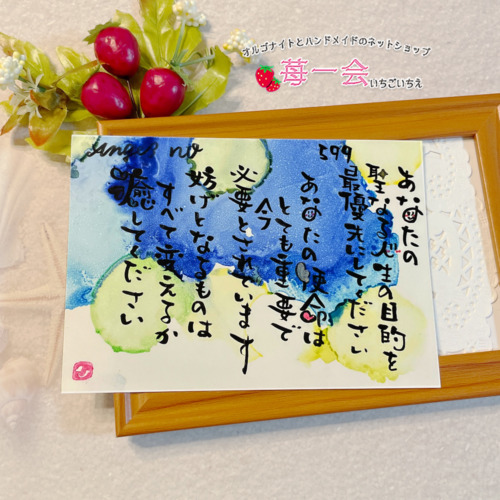 オルゴナイトとハンドメイドのネットショップ
苺一会
いちごいちえ
Angel no
599
あなたの
聖なる人生の目的を
最優先してください
あなたの使命は
とても重要で
今
必要とされています
妨げとなるものは
すべて変えるか
癒してください